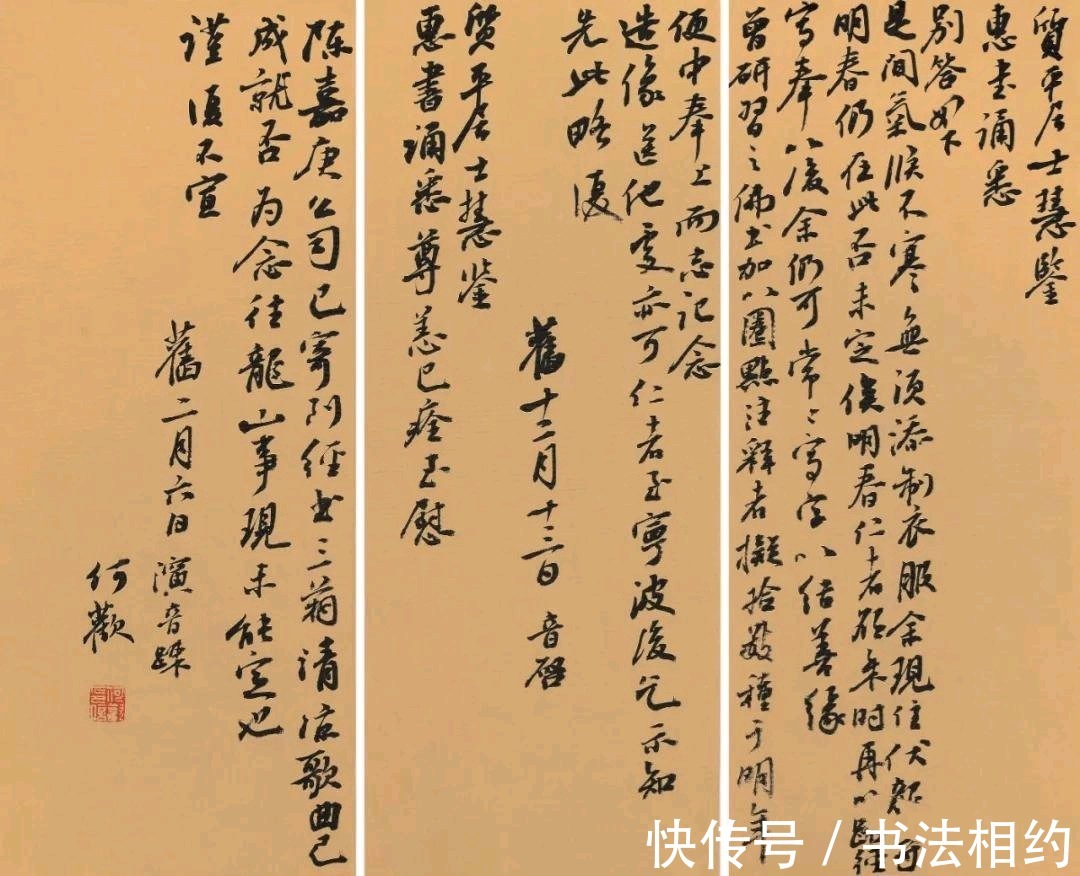 質平居士慧鑒
惠書誦悉
別答如下
是間氣候不寒無須添制衣服余現住伏龍可
明春仍住此否未定俟明春仁者欲來時再以
寫奉以後余仍可常々寫字以結善緣
曾研習之佛書加以圈點注釋者擬拾數種于明年
便中奉上而志記念
造像送他處亦可仁者至寧波後乞示知
先此略復
舊十二月十三日 音啓
質平居士慧鉴
惠書誦悉尊恙已痊至慰
陳嘉庚公司已寄到經書三箱清涼歌曲已
成就否為念住龍山事現未能定也
謹復不宣
舊二月六日演音疏
何歡
快传号 / 书法相约